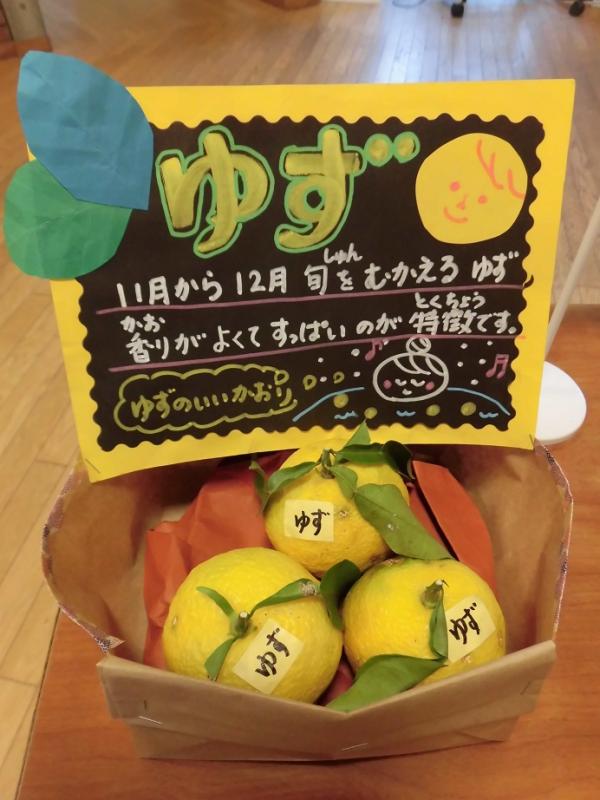 ゆず
11月から12月 旬をむかえる ゆず
しゅん
香りがよくて すっぱい のが 特徴です。
かお
とくちょう
ゆずのいいかおり
ゆず
ゆず
ゆず